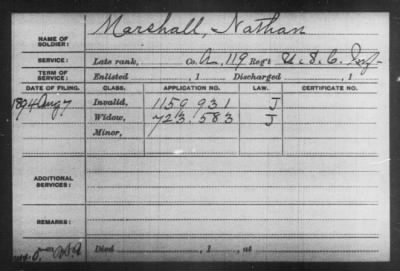 NAME OF SOLDIER: Marshall, Nathan
SERVICE: Late rank, Co. A, 119 Reg't U.S.C. Inf.
TERM OF SERVICE: Enlisted , 1 Discharged , 1
DATE OF FILING. CLASS. APPLICATION NO. LAW. CERTIFICATE NO.
1894 Aug 7 Invalid, 1159 931 J
Widow, 723.583 J
Minor,
ADDITIONAL SERVICES:
REMARKS:
Died , 1 , at